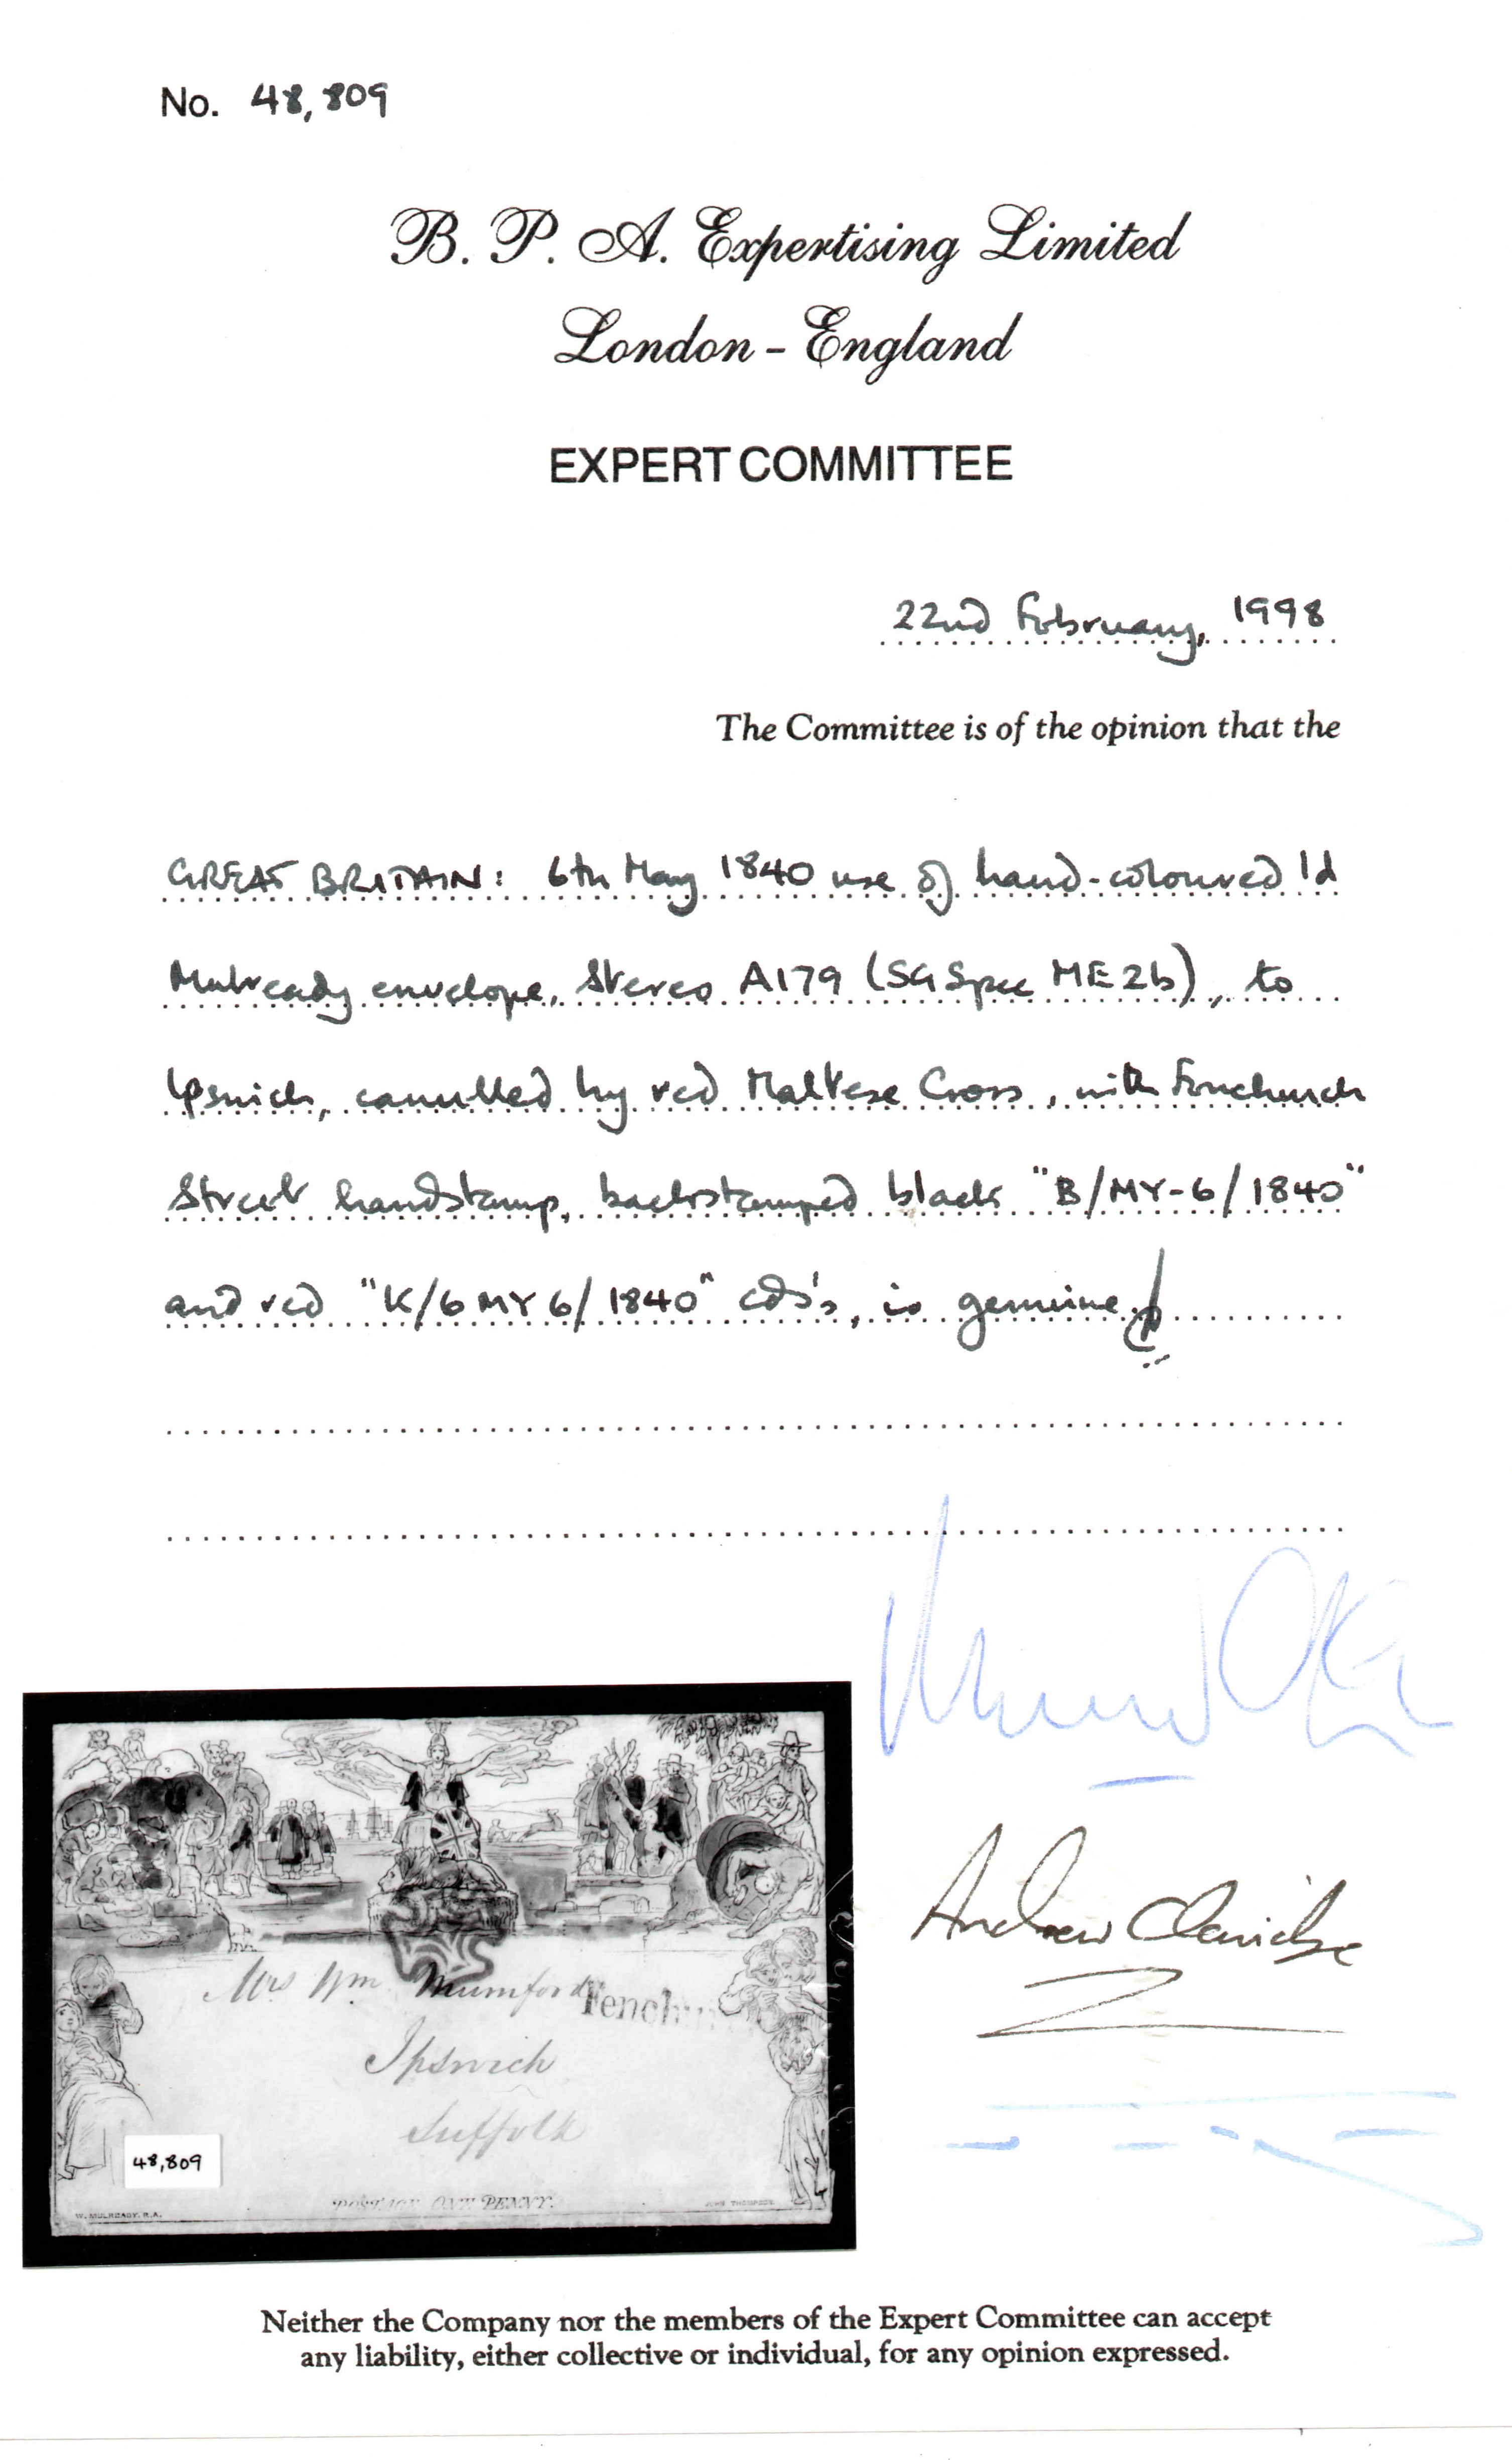 No. 48,809
B. P. A. Expertising Limited
London - England
EXPERT COMMITTEE
22nd February, 1998
The Committee is of the opinion that the
GREAT BRITAIN: 6th May 1840 use of hand-coloured 1d
Mulready envelope, Stereo A179 (SG Spec ME2b), to
Ipswich, cancelled by red Maltese Cross, with Fenchurch
Street handstamp, backstamped black "B/MY-6/1840"
and red "K/6MY6/1840" cds's, is genuine.
Andrew
Mrs Wm Mumford
Fenchu
Ipswich
Suffolk
48,809
POSTAGE ONE PENNY.
W. MULREADY. R.A.
JOHN THOMPSON
Neither the Company nor the members of the Expert Committee can accept
any liability, either collective or individual, for any opinion expressed.